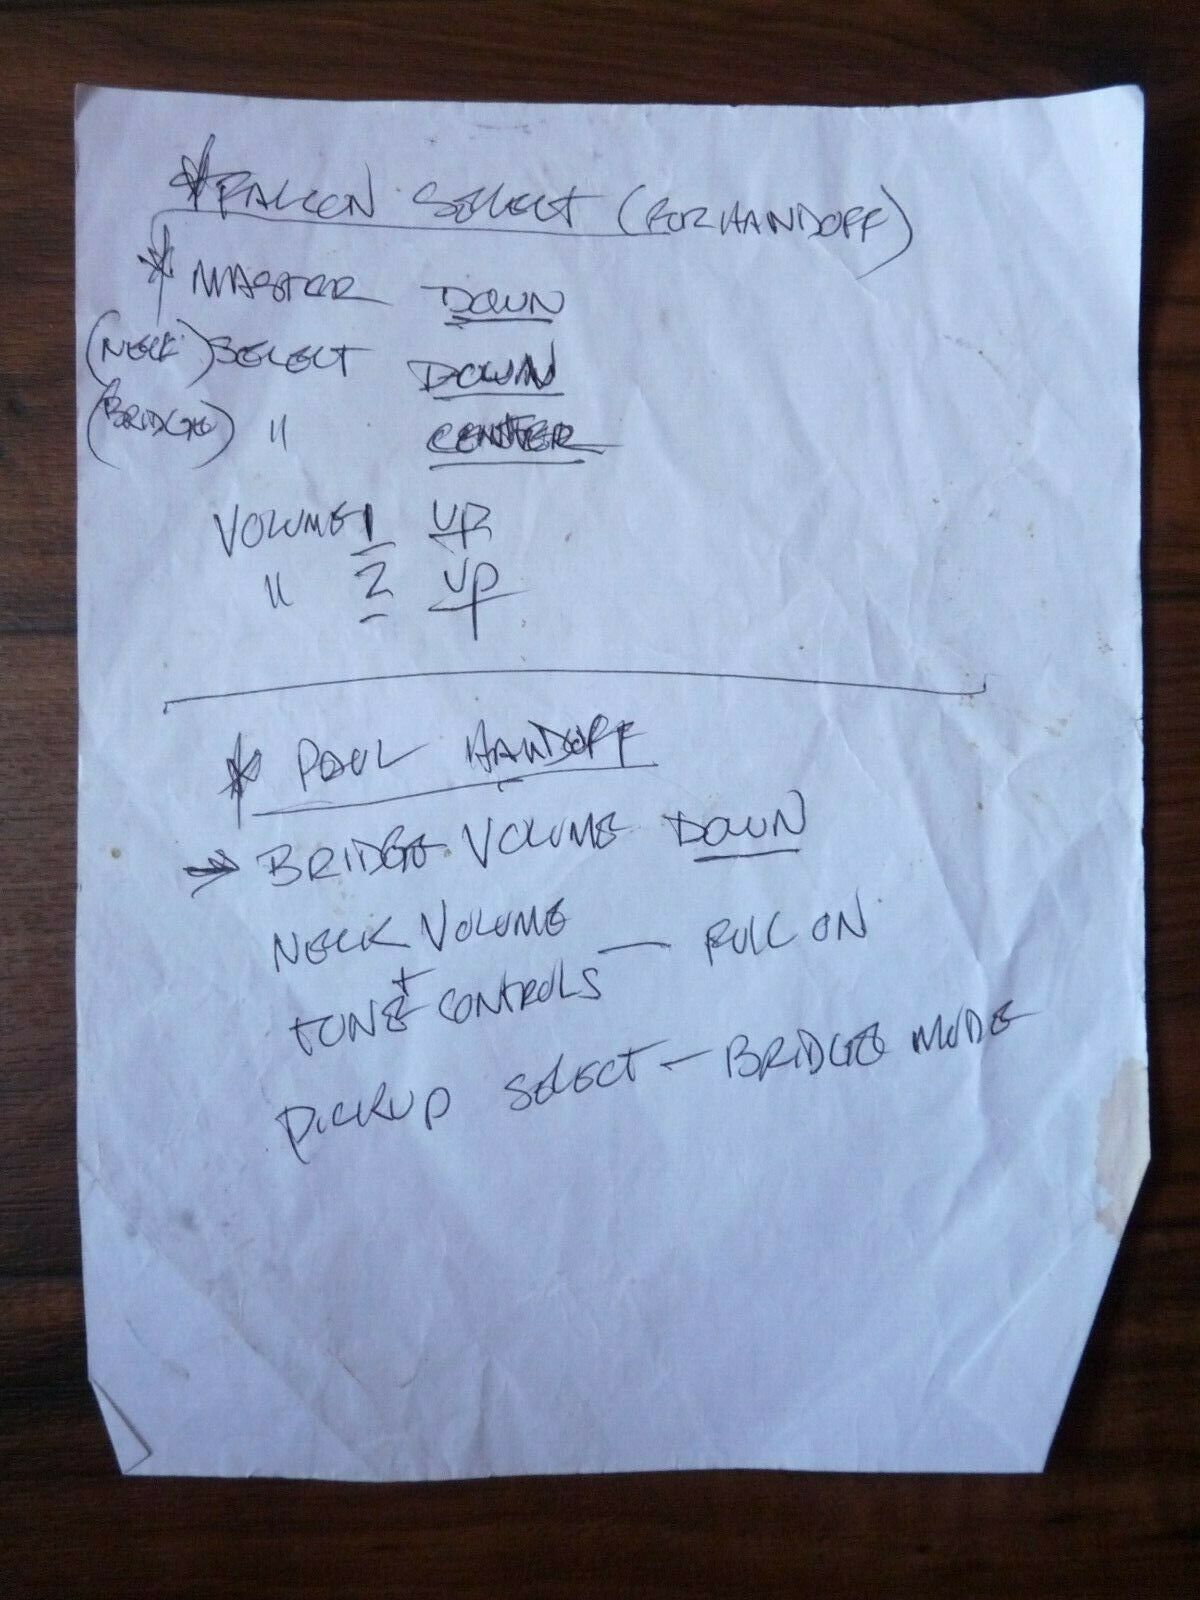 * FALCON SELECT (FOR HANDOFF)
* MASTER DOWN
(NECK) SELECT DOWN
(BRIDGE) " CENTER
VOLUME 1 UP
" 2 UP
* PAUL HANDOFF
→ BRIDGE VOLUME DOWN
NECK VOLUME — FULL ON
+
TONE CONTROLS
PICKUP SELECT — BRIDGE MODE